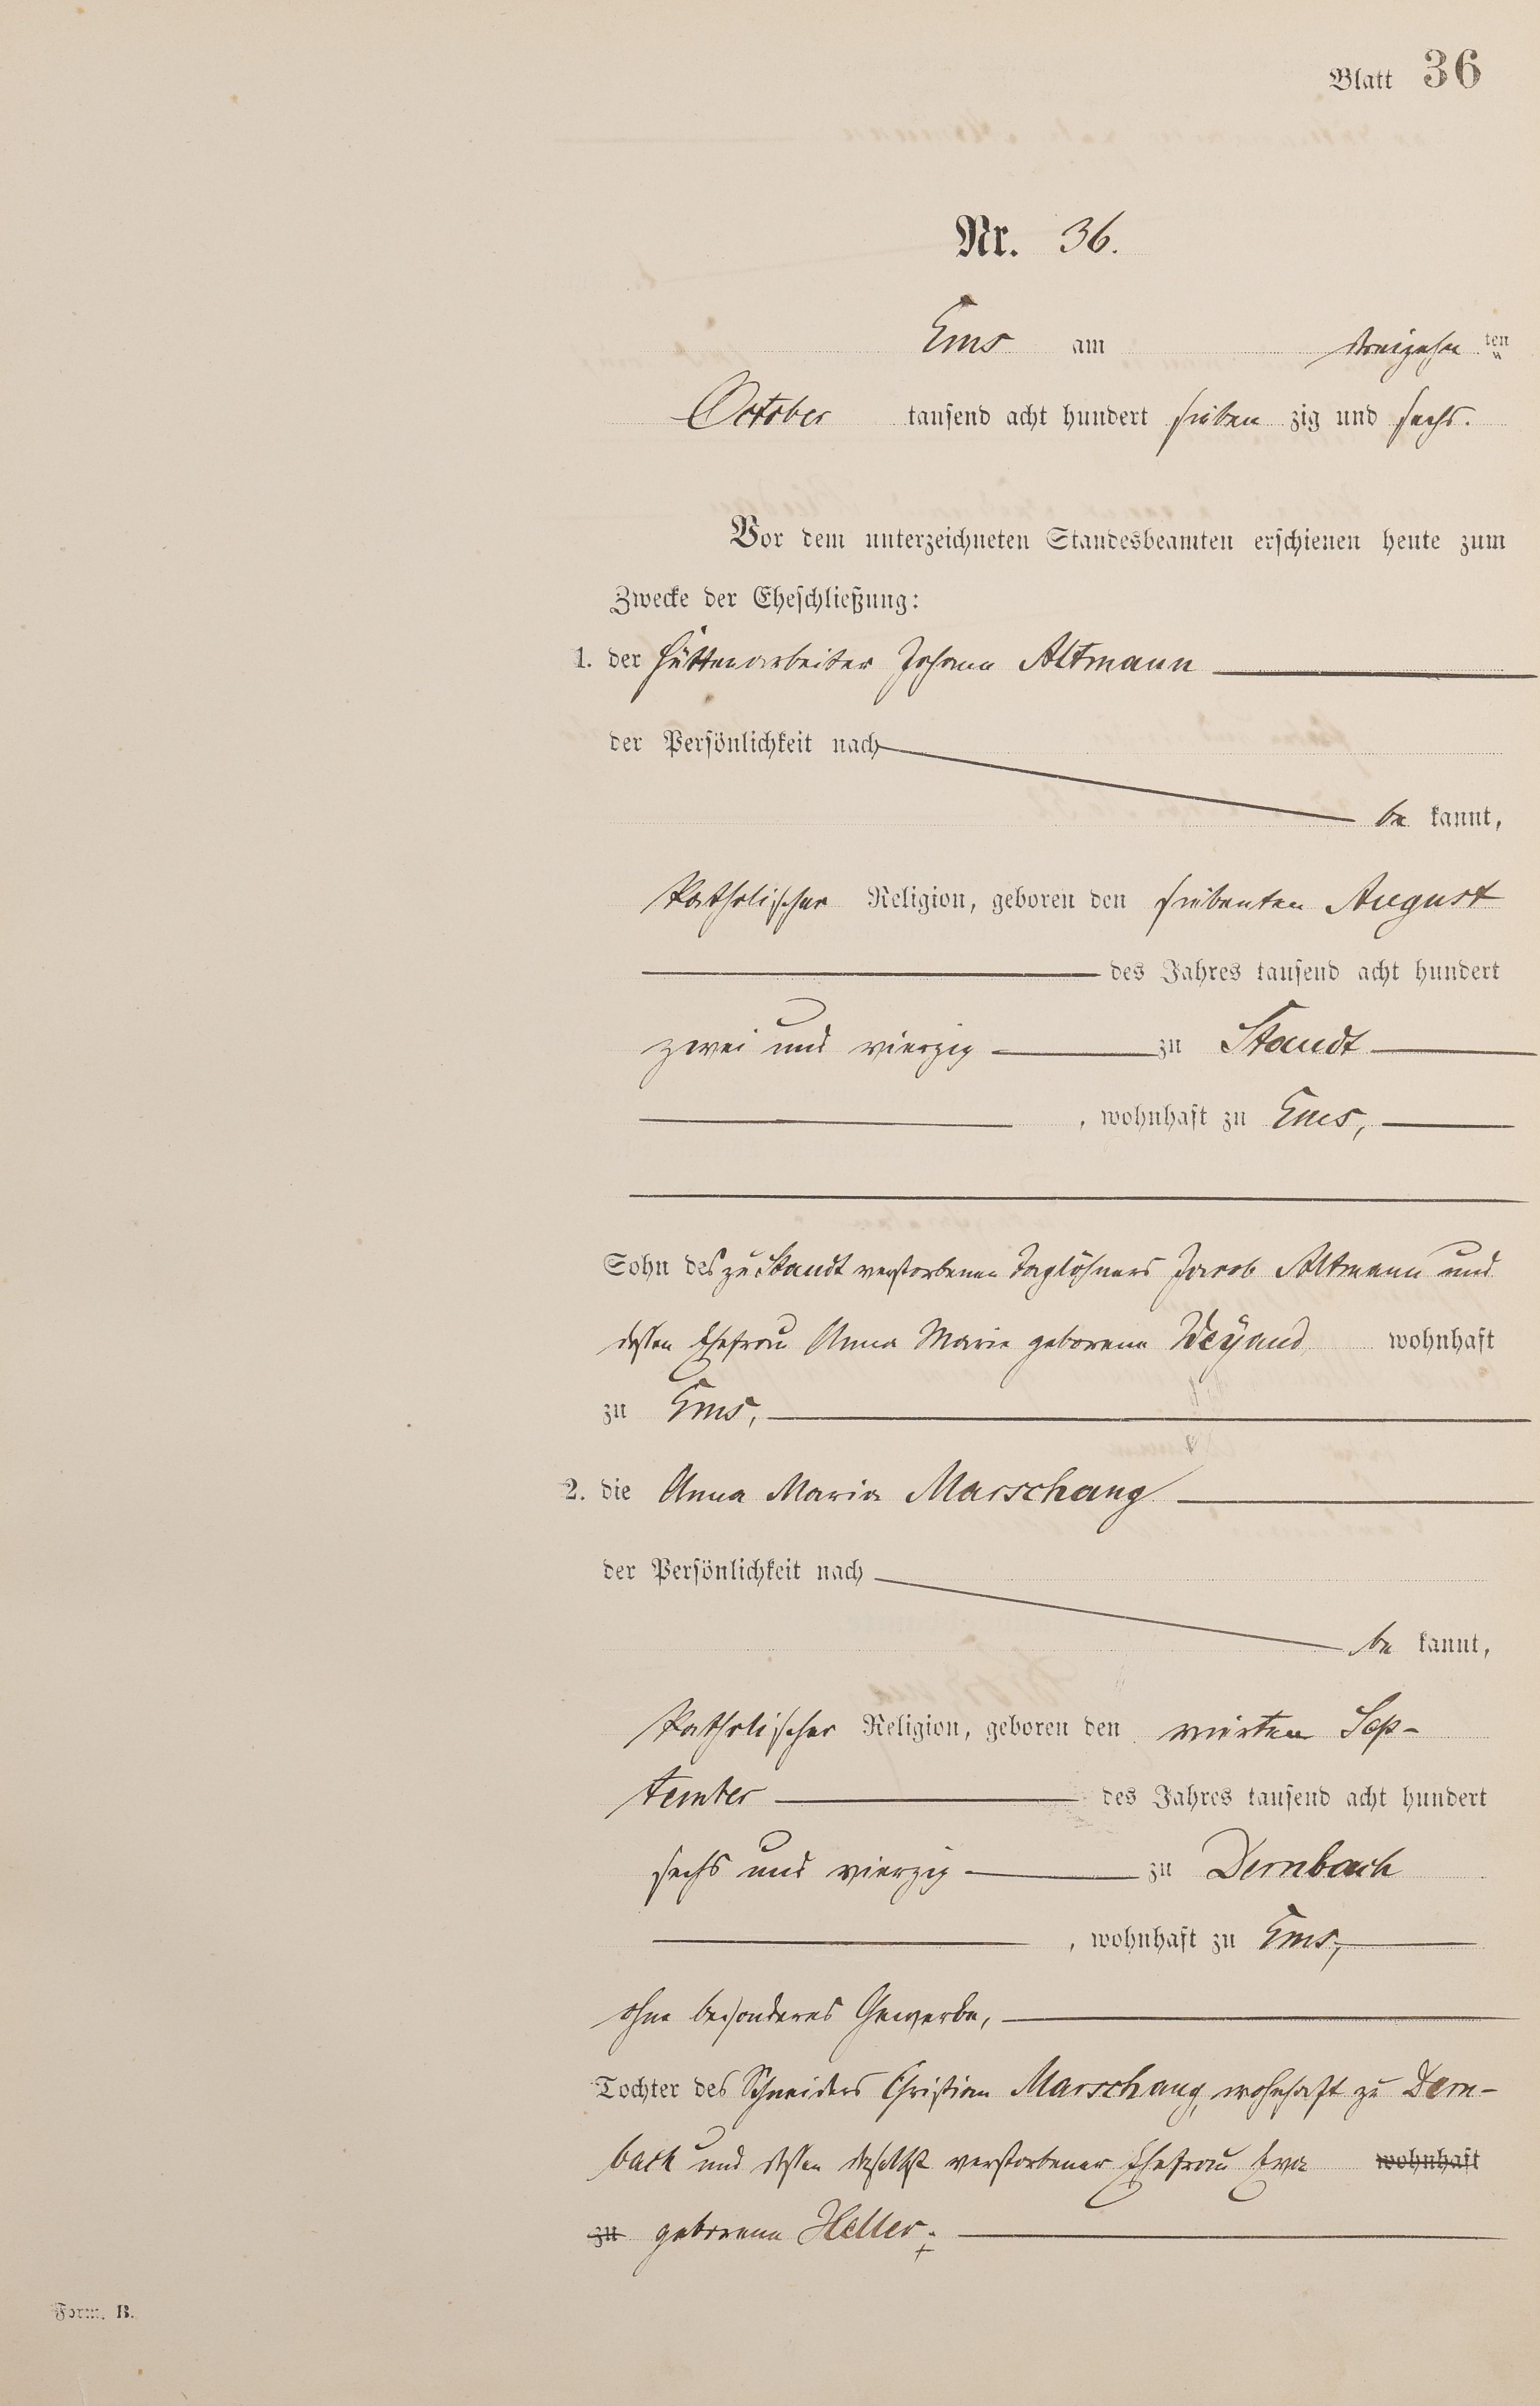 Blatt 36
Nr. 36.
Ems am dreizehn ten
October tausend acht hundert sieben zig und sechs.
Vor dem unterzeichneten Standesbeamten erschienen heute zum
Zwecke der Eheschließung:
1. der Hüttenarbeiter Johann Altmann
der Persönlichkeit nach
be kannt,
katholischer Religion, geboren den siebenten August
des Jahres tausend acht hundert
zwei und vierzig zu Staudt
, wohnhaft zu Ems,
Sohn des zu Staudt verstorbenen Taglöhners Jacob Altmann und
dessen Ehefrau Anna Marie geborene Weÿand wohnhaft
zu Ems,
2. die Anna Maria Marschang
der Persönlichkeit nach
be kannt,
katholischer Religion, geboren den vierten Sep-
tember des Jahres tausend acht hundert
sechs und vierzig zu Dernbach
, wohnhaft zu Ems,
ohne besonderes Gewerbe,
Tochter des Schneiders Christian Marschang, wohnhaft zu Dern-
bach und dessen daselbst verstorbener Ehefrau Eva wohnhaft
zu geborene Heller.
Form. B.